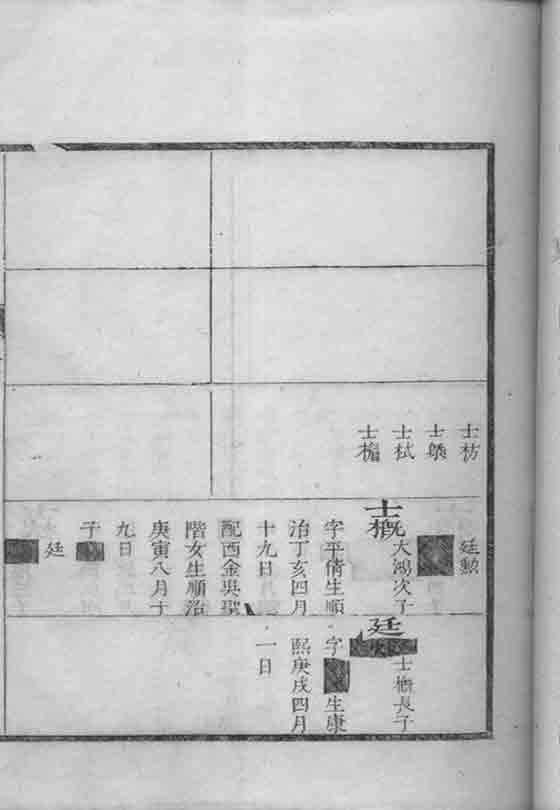 士枋
士槼
士栻
士楣
廷勳
士概
大鴻次子
字平倩生順
治丁亥四月
十九日
配西金吳聖
階女生順治
庚寅八月十
九日
子
廷
廷
士概長子
字 生康
熙庚戌四月
一日